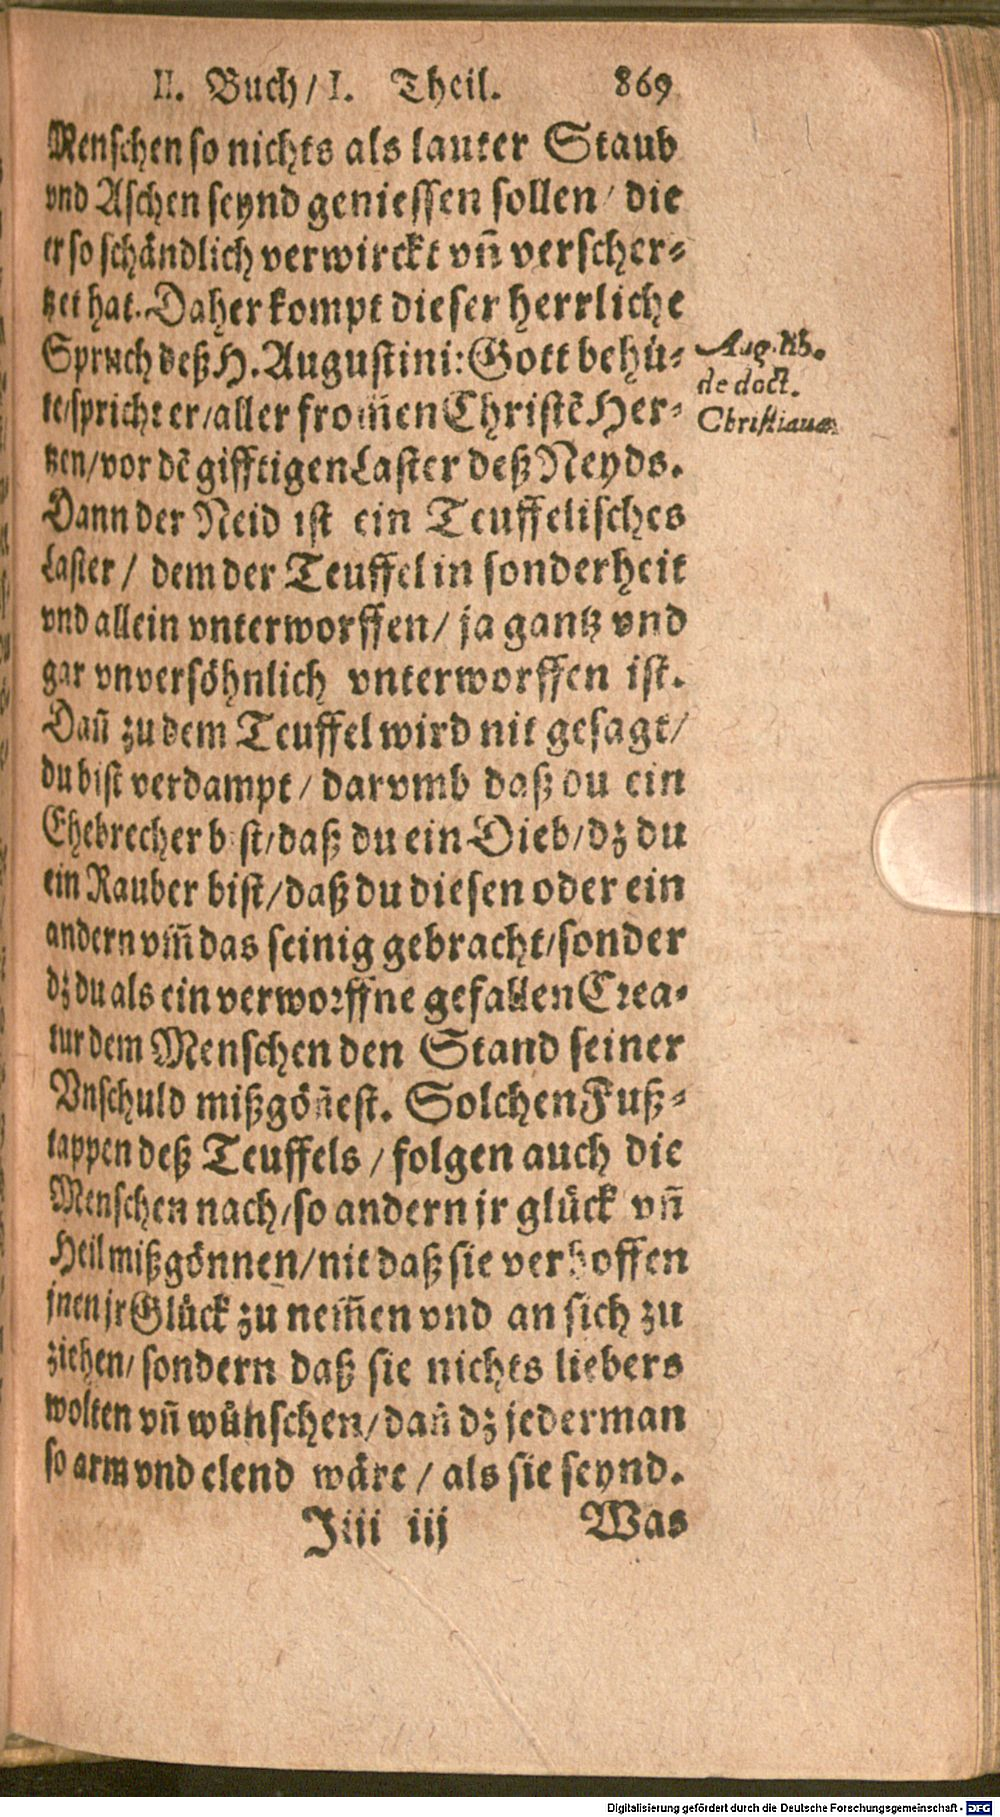 II. Buch/ I. Theil. 869
Menschen so nichts als lauter Staub
vnd Aschen seynd geniessen sollen/ die
er so schändlich verwirckt vñ verscher-
tzet hat. Daher kompt dieser herrliche
Spruch deß H. Augustini: Gott behü-
te/spricht er/aller from̃en Christẽ Her-
tzen/vor dẽ gifftigen Laster deß Neyds.
Dann der Neid ist ein Teuffelisches
Laster/ dem der Teuffel in sonderheit
vnd allein vnterworffen/ ja gantz vnd
gar vnversöhnlich vnterworffen ist.
Dañ zu dem Teuffel wird nit gesagt/
du bist verdampt/ darvmb daß du ein
Ehebrecher bist/daß du ein Dieb/dz du
ein Rauber bist/daß du diesen oder ein
andern vm̃ das seinig gebracht/sonder
dz du als ein verworffne gefallen Crea-
tur dem Menschen den Stand seiner
Vnschuld mißgöñest. Solchen Fuß-
tappen deß Teuffels/ folgen auch die
Menschen nach/so andern jr glück vñ
Heil mißgönnen/nit daß sie verhoffen
jnen jr Glück zu nem̃en vnd an sich zu
ziehen/ sondern daß sie nichts liebers
wolten vñ wünschen/dañ dz jederman
so arm vnd elend wäre/ als sie seynd.
Jiii iij Was
Aug. lib.
de doct.
Christiana
Digitalisierung gefördert durch die Deutsche Forschungsgemeinschaft - DFG